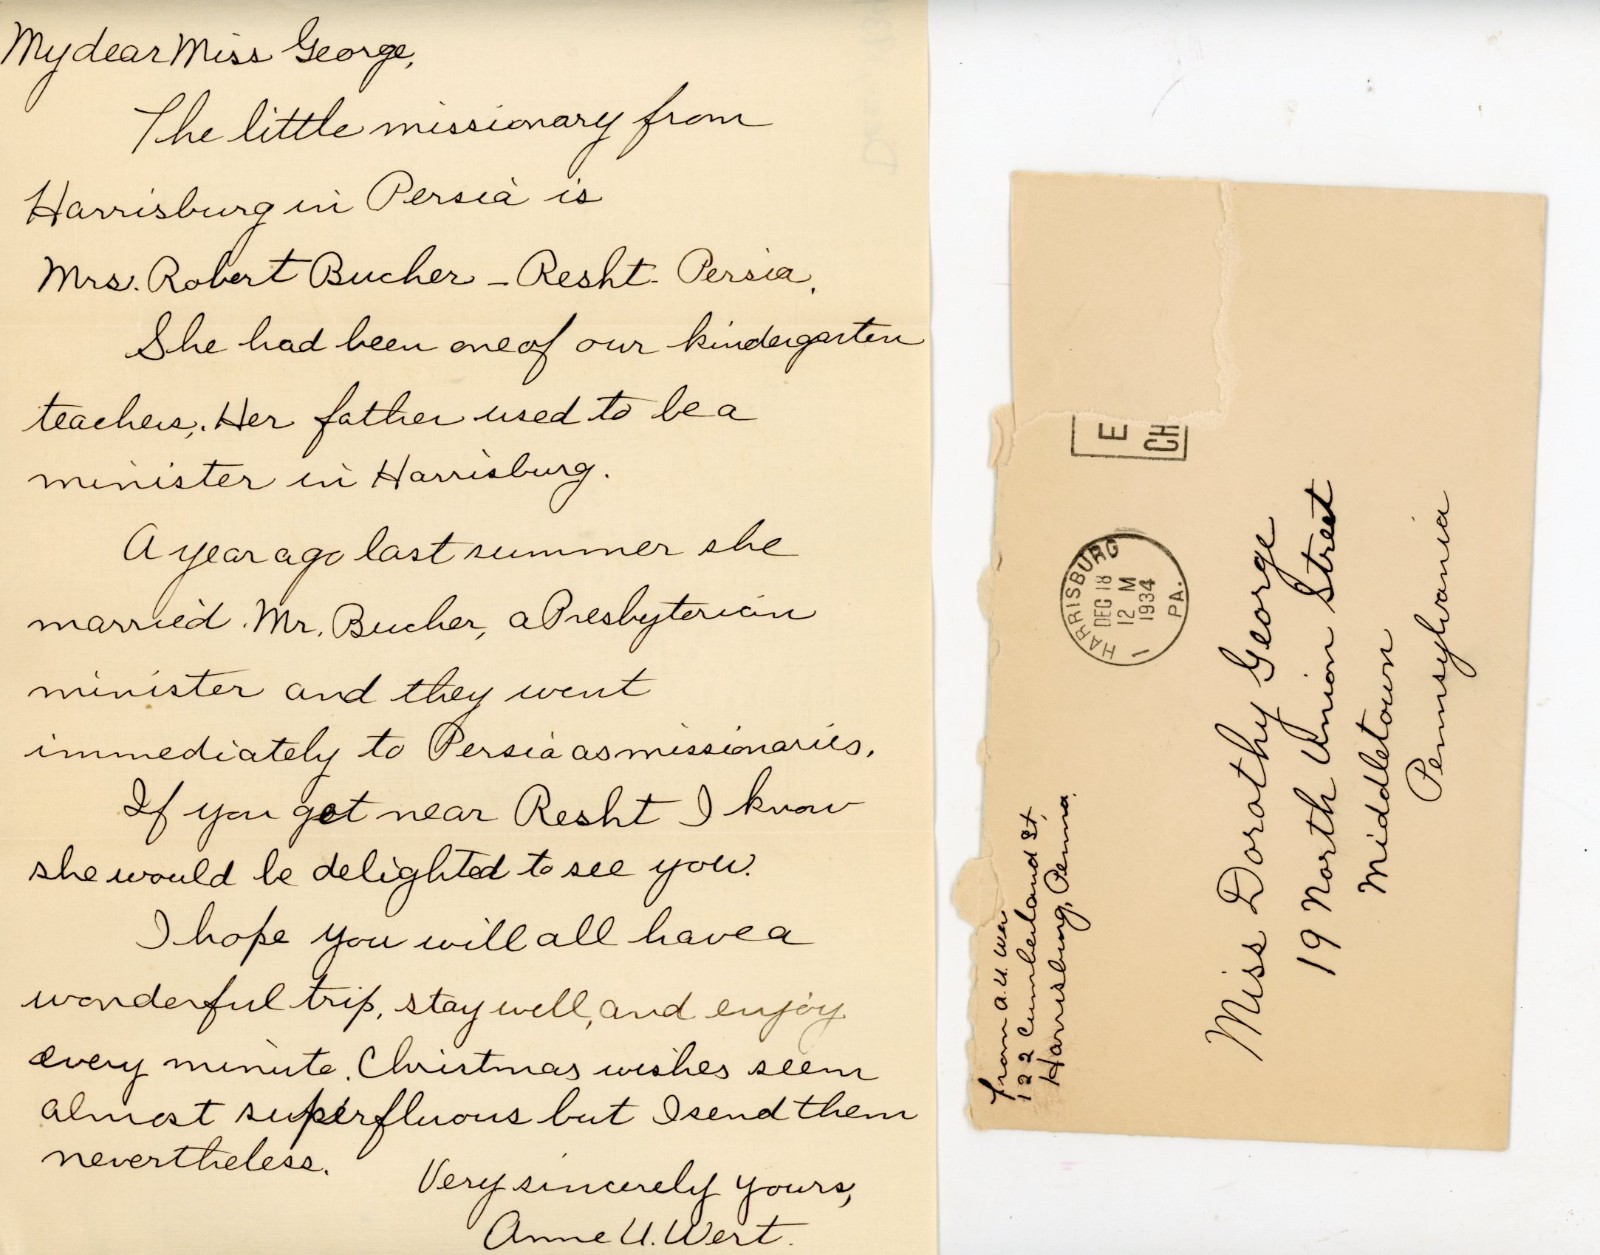 My dear Miss George,
The little missionary from
Harrisburg in Persia is
Mrs. Robert Bucher - Resht - Persia.
She had been one of our kindergarten
teachers. Her father used to be a
minister in Harrisburg.
A year ago last summer she
married Mr. Bucher, a Presbyterian
minister and they went
immediately to Persia as missionaries.
If you get near Resht I know
she would be delighted to see you.
I hope you will all have a
wonderful trip, stay well, and enjoy
every minute. Christmas wishes seem
almost superfluous but I send them
nevertheless.
Very sincerely yours,
Anne U. Wert.
From A. U. Wer
122 Cumberland St,
Harrisburg, Penna.
HARRISBURG
DEC 18
12 M
1934
PA.
1
E
CH
Miss Dorothy George
19 North Union Street
Middletown
Pennsylvania